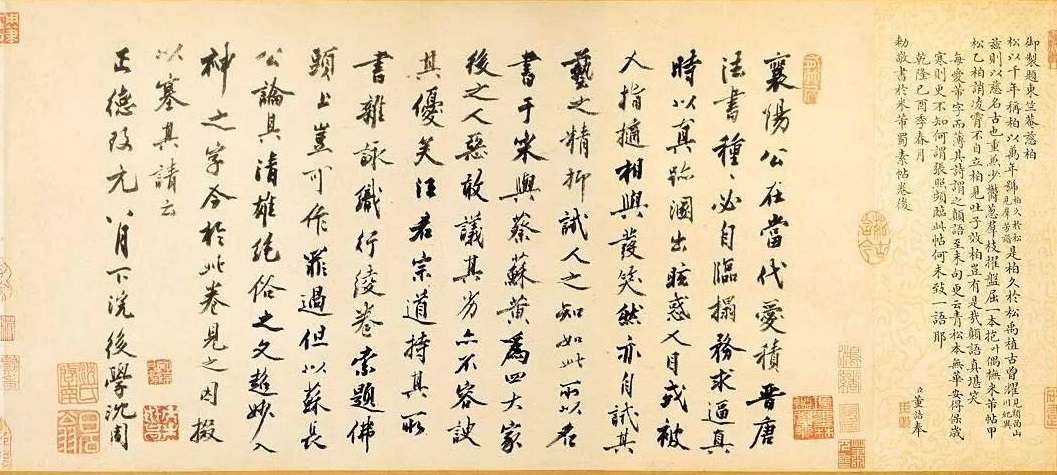 御製題東竺菴慈柏
松以千年稱柏以萬年號柏久於松見羣芳譜是柏久於松禹植古曾躍見類函山川紀異
茲則以慈名古也重無少欝葱羣枝擢盤屈一本抱忽偶撫米芾帖甲
松乙柏誚凌霄不自立柏見吐子效柏豈有是哉顛語真堪笑
每愛芾字而薄其詩謂之顛語至末句更云青松本無華安得保歲
寒則更不知何謂張照頻臨此帖何未致一語耶
乾隆己酉季春月
勅敬書於米芾蜀素帖卷後
臣董誥奉
襄陽公在當代愛積晉唐
法書種種必自臨搨務求逼真
時以真跡溷出眩惑人目或被
人指擿相與發笑然亦自試其
藝之精抑試人之知如此所以名
書于宋與蔡蘇黃為四大家
後之人惡敢議其劣亦不容諛
其優矣汪君宗道持其所
書雜詠織行綾卷索題佛
頭上豈可作罪過但以蘇長
公論其清雄絕俗之文超妙入
神之字今於此卷見之因掇
以塞其請云
正德改元八月下浣後學沈周